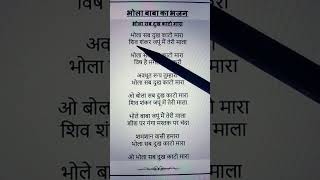 भोला बाबा का भजन
भोला सब दुख काटो मारा
भोला सब दुख काटो मारा
शिव शंकर जपूं मैं तेरी माला
भोला सब दुख
विष है
अवधूत रूप तुम्हारा
भोला सब दुख काटो मारा
ओ भोला सब दुख काटो मारा
शिव शंकर जपूं मैं तेरी माला
भोले बाबा जपूं मैं तेरी माला
शीश पर गंगा मस्तक पर चंदा
शमशान वासी हमारा
भोला सब दुख काटो मारा
ओ भोला सब दुख काटो मारा